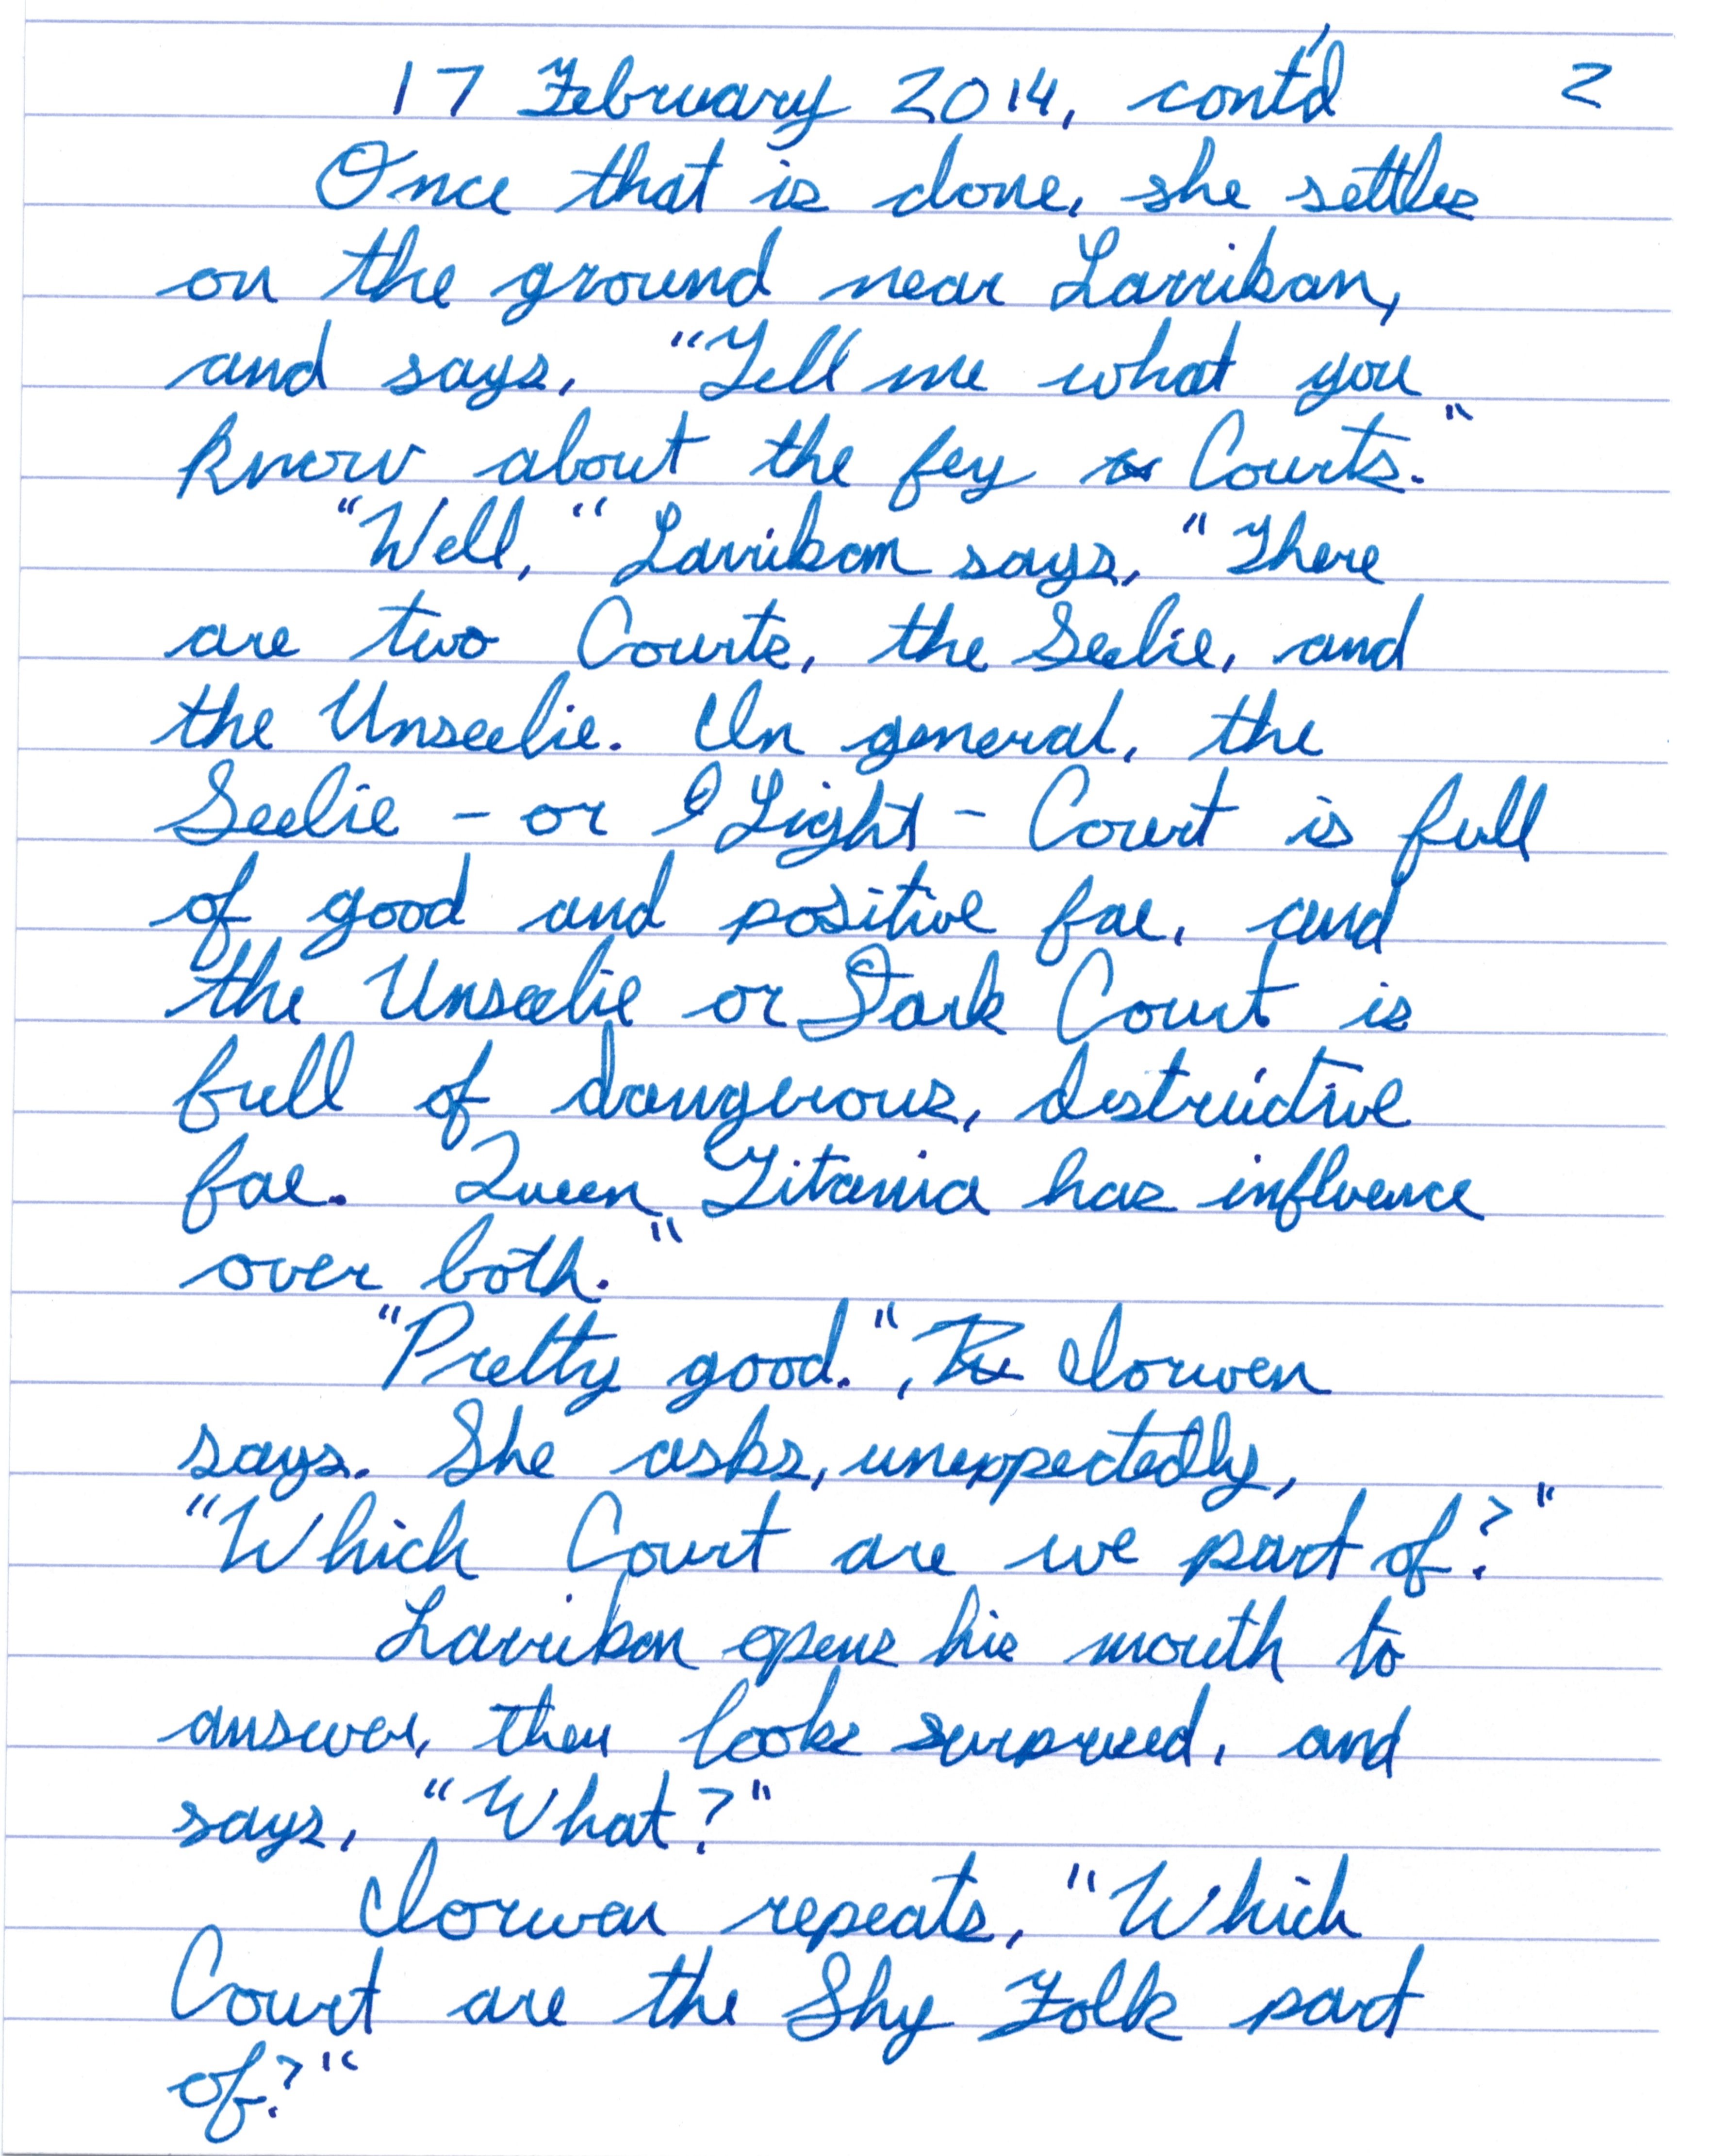 17 February 2014, cont'd 2
Once that is done, she settles
on the ground near Larriban,
and says, "Tell me what you
know about the fey Courts."
"Well," Larriban says, "There
are two Courts, the Seelie, and
the Unseelie. In general, the
Seelie - or Light - Court is full
of good and positive fae, and
the Unseelie or Dark Court is
full of dangerous, destructive
fae. Queen Titania has influence
over both."
"Pretty good.", Iorwen
says. She asks, unexpectedly,
"Which Court are we part of?"
Larriban opens his mouth to
answer, then looks surprised, and
says, "What?"
Iorwen repeats, "Which
Court are the Shy Folk part
of?"